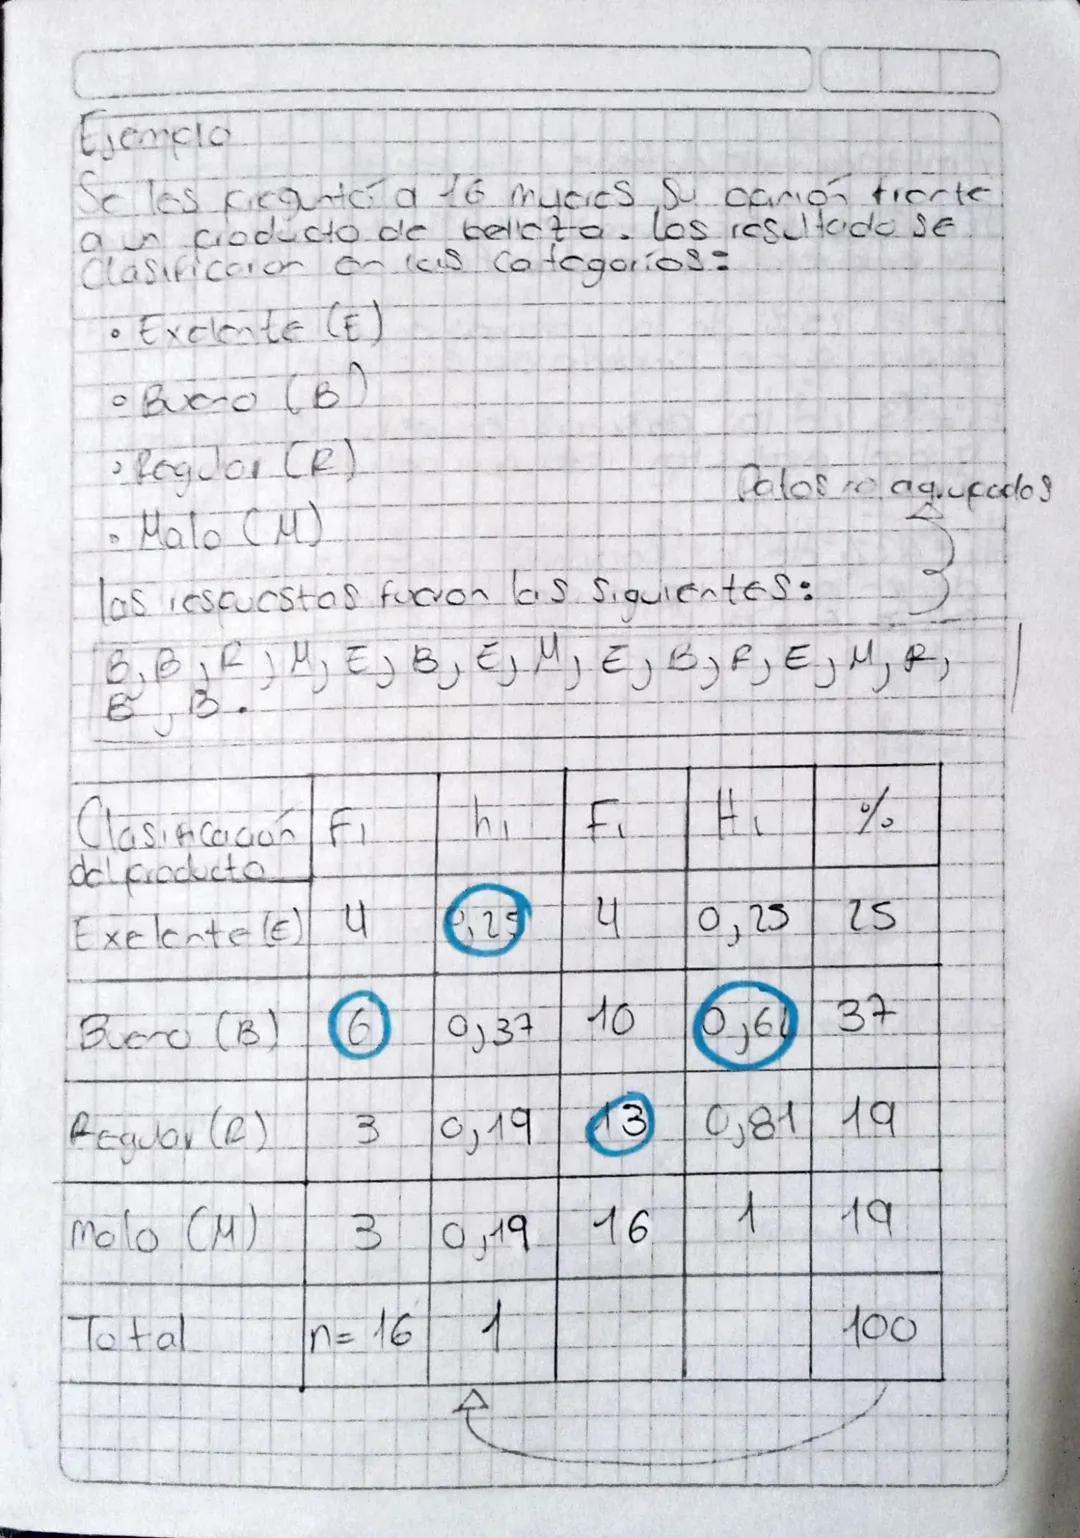 Ejemplo
Se les preguntó a 16 mujeres su opinión frente
a un producto de belleza. Los resultado se
Clasificaron en las categorías:
• Exelente (E)
• Bueno (B)
• Regular (R)
Datos no agrupados
• Malo (M)
las respuestas fueron las siguientes:
B, B, R, M, E, B, E, M, E, B, R, E, M, R,
B, B.
Clasificación F1 h1 Fi Hi %
del producto
Exelente (E) 4 0,25 4 0,25 25
Bueno (B) 6 0,37 10 0,62 37
Regular (R) 3 0,19 13 0,81 19
Malo (M) 3 0,19 16 1 19
Total n= 16 1 100